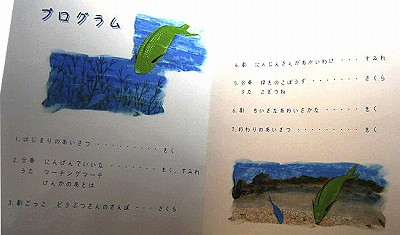 プログラム
1.はじまりのあいさつ ・・・・・・・・・ きく
2.合奏 にんげんていいな ・・・・・・ きく、すみれ
うた マーチングマーチ
けんかのあとは
3.劇ごっこ どうぶつさんのさんぽ ・・・ さくら
4.劇 にんじんさんがあかいわけ ・・・・ すみれ
5.合奏 ゆきのこぼうず ・・・・・ さくら
うた こぎつね
6.劇 ちいさなあおいさかな ・・・ きく
7.おわりのあいさつ ・・・・・・・ きく